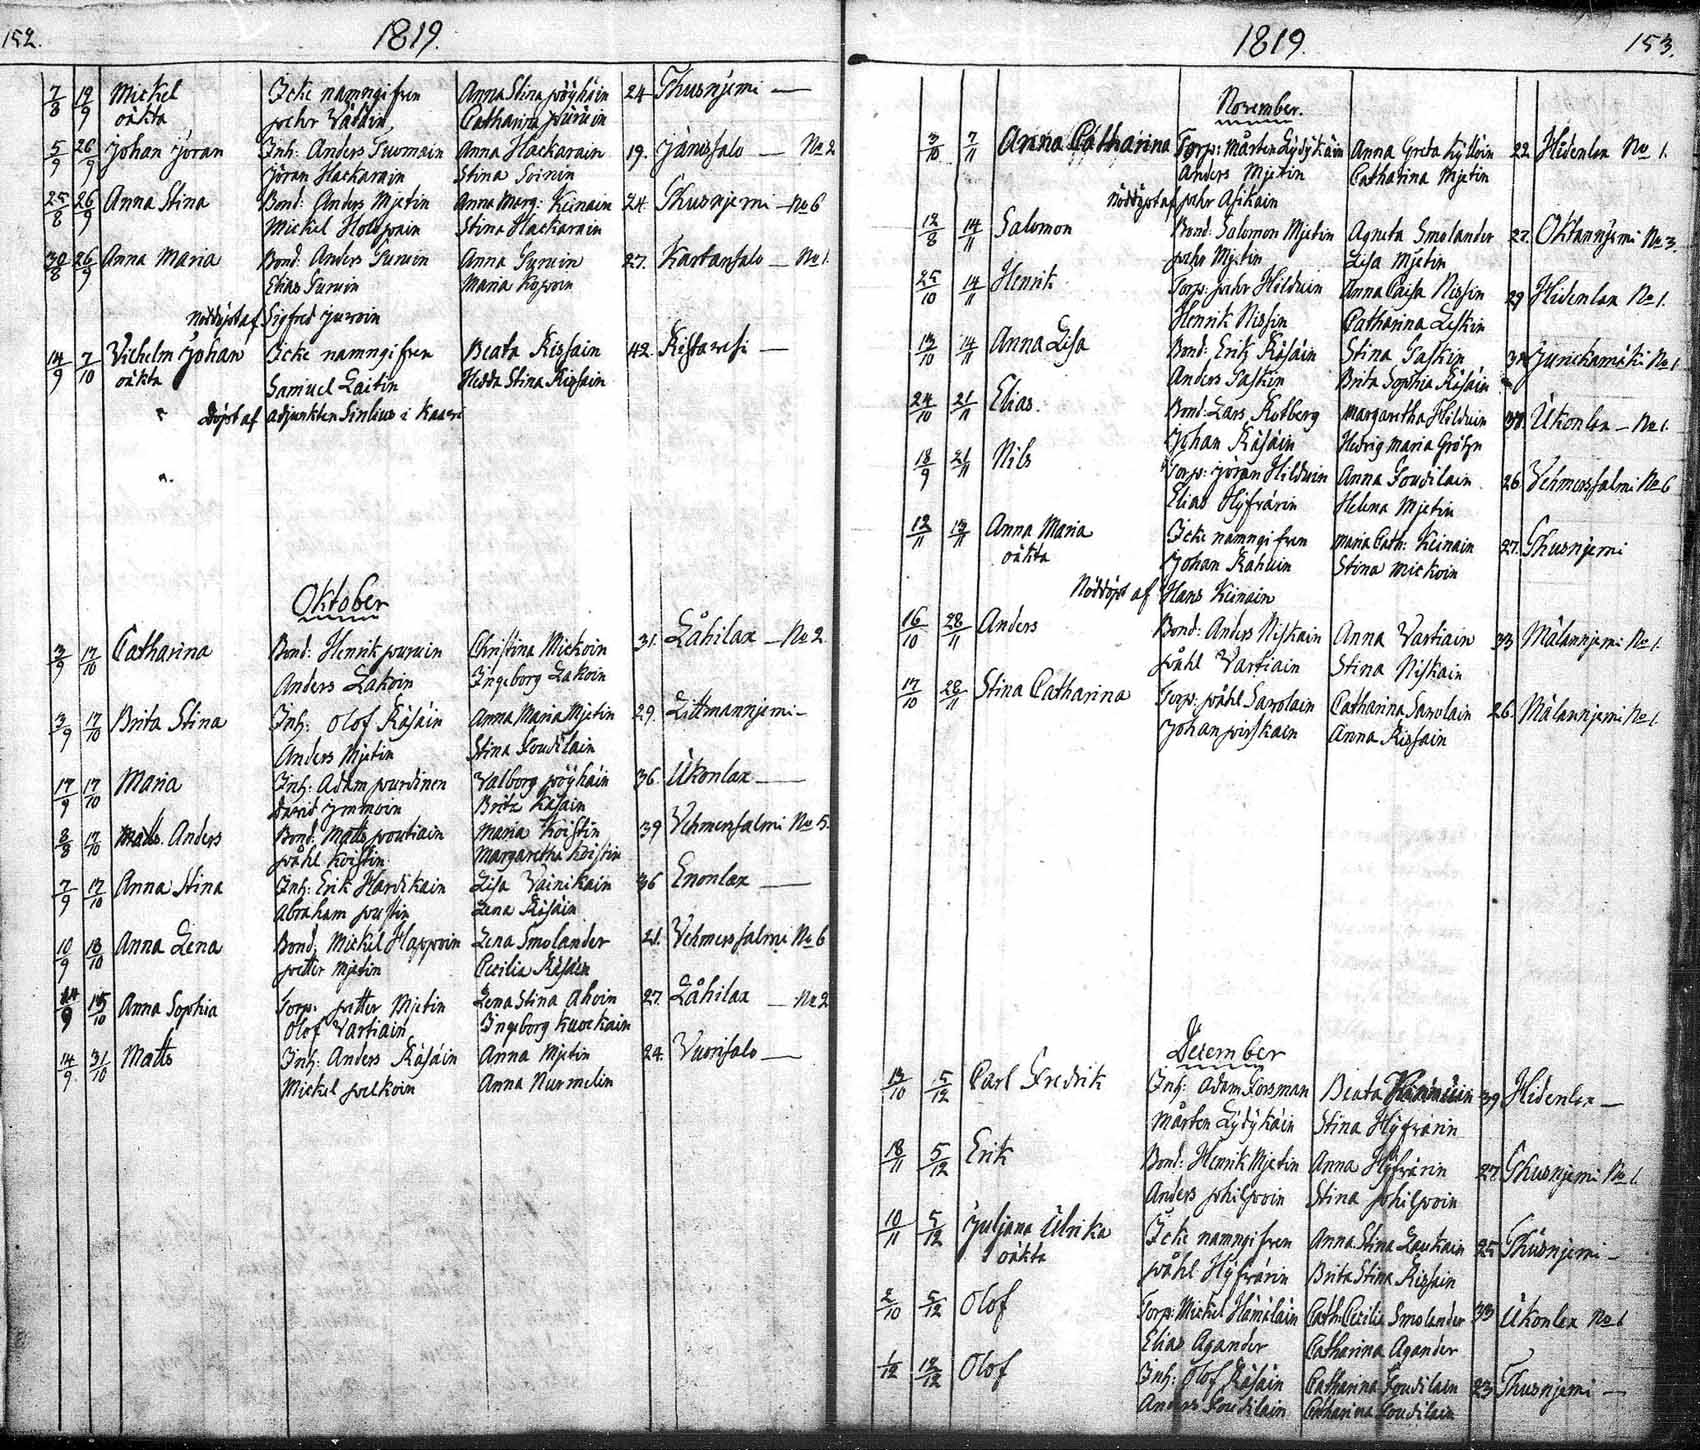 152.
1819.
7/8 19/9 Mickel Icke namngifven Anna Stina Pöyhäin 24 Thusnjemi —
oäkta Pehr Väläin Catharina Puruin
5/9 26/9 Johan Jöran Inh: Anders Tuomain Anna Hackarain 19. Jänissalo — No 2
Jöran Hackarain Stina Soinin
25/8 26/9 Anna Stina Bond: Anders Mjetin Anna Marg: Keinain 24. Thusnjemi — No 6
Mickel Holopain Stina Hackarain
30/8 26/9 Anna Maria Bond: Anders Puruin Anna Puruin 27. Kartansalo — No 1.
Elias Puruin Maria Kopoin
Nöddöpt af Sigfred Juvoin
14/9 7/10 Vilhelm Johan Icke namngifven Beata Rissain 42. Ristavesi —
oäkta Samuel Laitin Hedda Stina Rissain
Döpt af adjunkten Sirelius i Kaavi
Oktober
3/9 17/10 Catharina Bond: Henrik Puruin Christina Mickoin 31. Låhilax — No 2.
Anders Lakoin Ingeborg Lakoin
3/9 17/10 Brita Stina Inh: Olof Räsäin Anna Maria Mjetin 29. Littmannjemi —
Anders Mjetin Stina Soudilain
17/9 17/10 Maria Inh: Adam Pourdinen Valborg Pöyhäin 36. Ukonlax —
David Immoin Brita Räsäin
8/8 17/10 Matts Anders Bond: Matts Poutiain Maria Koistin 39 Vehmersalmi No 5.
Påhl Koistin Margaretha Koistin
7/9 17/10 Anna Stina Inh: Erik Hardikain Lisa Vainikain 36 Enonlax —
Abraham Pustin Lena Räsäin
10/9 18/10 Anna Lena Bond: Mickel Happoin Lena Smolander 21. Vehmersalmi No 6
Petter Mjetin Cecilia Räsäin
14/9 15/10 Anna Sophia Torp: Petter Mjetin Lena Stina Ahoin 27. Låhilax — No 2
Olof Vartiain Ingeborg Kuockain
14/9 31/10 Matts Inh: Anders Räsäin Anna Mjetin 24. Vuorisalo —
Mickel Pelkoin Anna Nurmelin
1819.
153.
November.
3/10 7/11 Anna Catharina Torp: Mårten Lydykäin Anna Greta Kylloin 22. Hidenlax No 1.
Anders Mjetin Catharina Mjetin
Nöddöpt af Pehr Asikain
12/8 14/11 Salomon Bond: Salomon Mjetin Agneta Smolander 27. Oktannjemi No 3.
Pehr Mjetin Lisa Mjetin
25/10 14/11 Henrik Torp: Pehr Hilduin Anna Caisa Nissin 29 Hidenlax No 1.
Henrik Nissin Catharina Leskin
13/10 14/11 Anna Lisa Bond: Erik Räsäin Stina Taskin Junckamäki No 1
Anders Taskin Brita Sophia Räsäin
24/10 21/11 Elias. Bond: Lars Rotberg Margaretha Hilduin Ukonlax — No 1.
Johan Räsäin Hedvig Maria Grötzn
18/9 21/11 Nils Torp: Jöran Hilduin Anna Soudilain 26. Vehmersalmi No 6
Elias Hyfvärin Helena Mjetin
12/11 13/11 Anna Maria Icke namngifven Maria Cath: Keinain 27. Thusnjemi
oäkta Johan Rahuin Stina Mickoin
Nöddöpt af Hans Keinain
16/10 28/11 Anders Bond: Anders Niskain Anna Vartiain 33 Målannjemi No 1.
Påhl Vartiain Stina Niskain
17/10 28/11 Stina Catharina Torp: Påhl Savolain Catharina Savolain 26. Målannjemi No 1.
Johan Pirskain Anna Rissain
December
13/10 5/12 Carl Fredrik Inh: Adam Forsman Beata 39 Hidenlax —
Mårten Lydykäin Stina Hyfvärin
18/11 5/12 Erik Bond: Henrik Mjetin Anna Hyfvärin 27 Thusnjemi No 1.
Anders Philpoin Stina Philpoin
10/11 5/12 Juljana Ulrika Icke namngifven Anna Stina Laukain 25 Thusnjemi —
oäkta Påhl Hyfvärin Brita Stina Rissain
2/10 5/12 Olof Torp: Mickel Hämäläin Cath: Cecilia Smolander 33 Ukonlax No 1
Elias Agander Catharina Agander
1/12 12/12 Olof Inh: Olof Räsäin Catharina Soudilain 23 Thusnjemi —
Anders Soudilain Catharina Soudilain